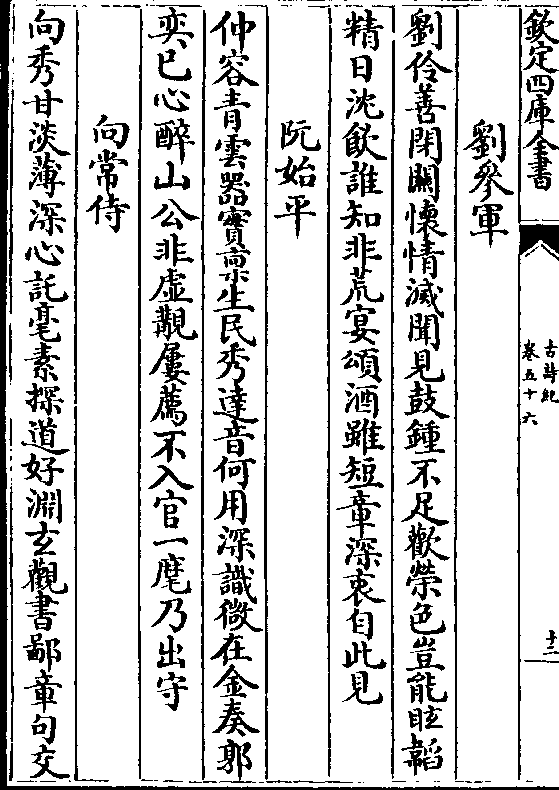 欽定四庫全書
古詩紀
卷五十六
十二
劉參軍
劉伶善閉關懷情滅聞見鼓鍾不足歡榮色豈能眩韜
精日沈飲誰知非荒宴頌酒雖短章深衷自此見
阮始平
仲容青雲器實稟生民秀達音何用深識微在金奏郭
奕已心醉山公非虛覯屢薦不入官一麾乃出守
向常侍
向秀甘淡薄深心託毫素探道好淵玄觀書鄙章句交